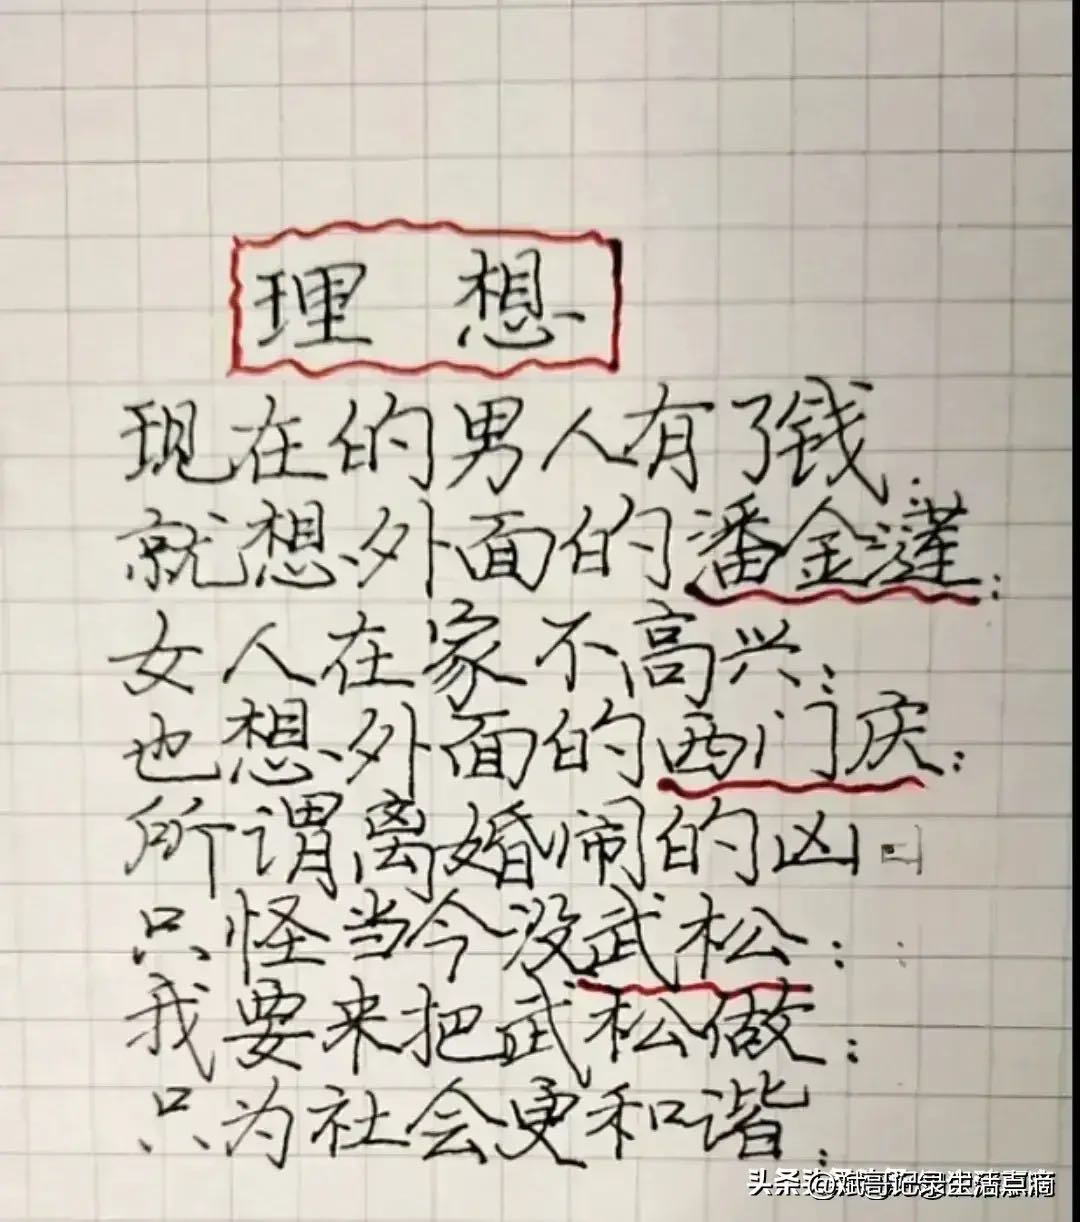 理想
现在的男人有了钱.
就想外面的潘金莲:
女人在家不高兴;
也想外面的西门庆:
所谓离婚闹的凶
只怪当今没武松:
我要来把武松做:
只为社会更和谐:
头条 @斌哥记录生活点滴